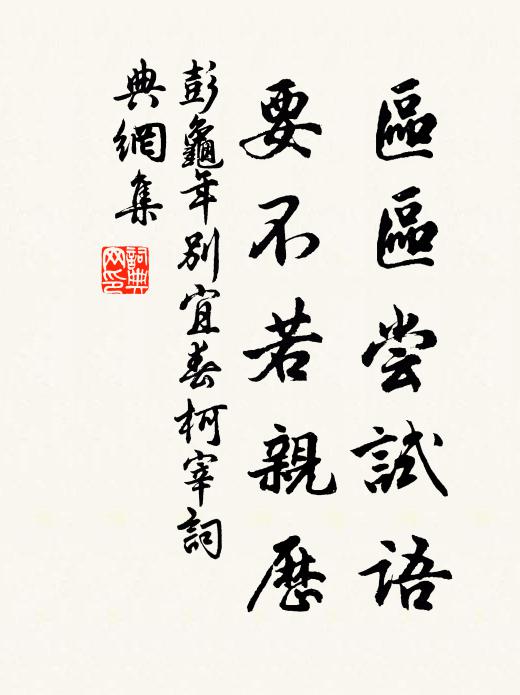 區區嘗試語
要不若親歷
彭龜年別宜春柯宰詞
典網集
詞典網印